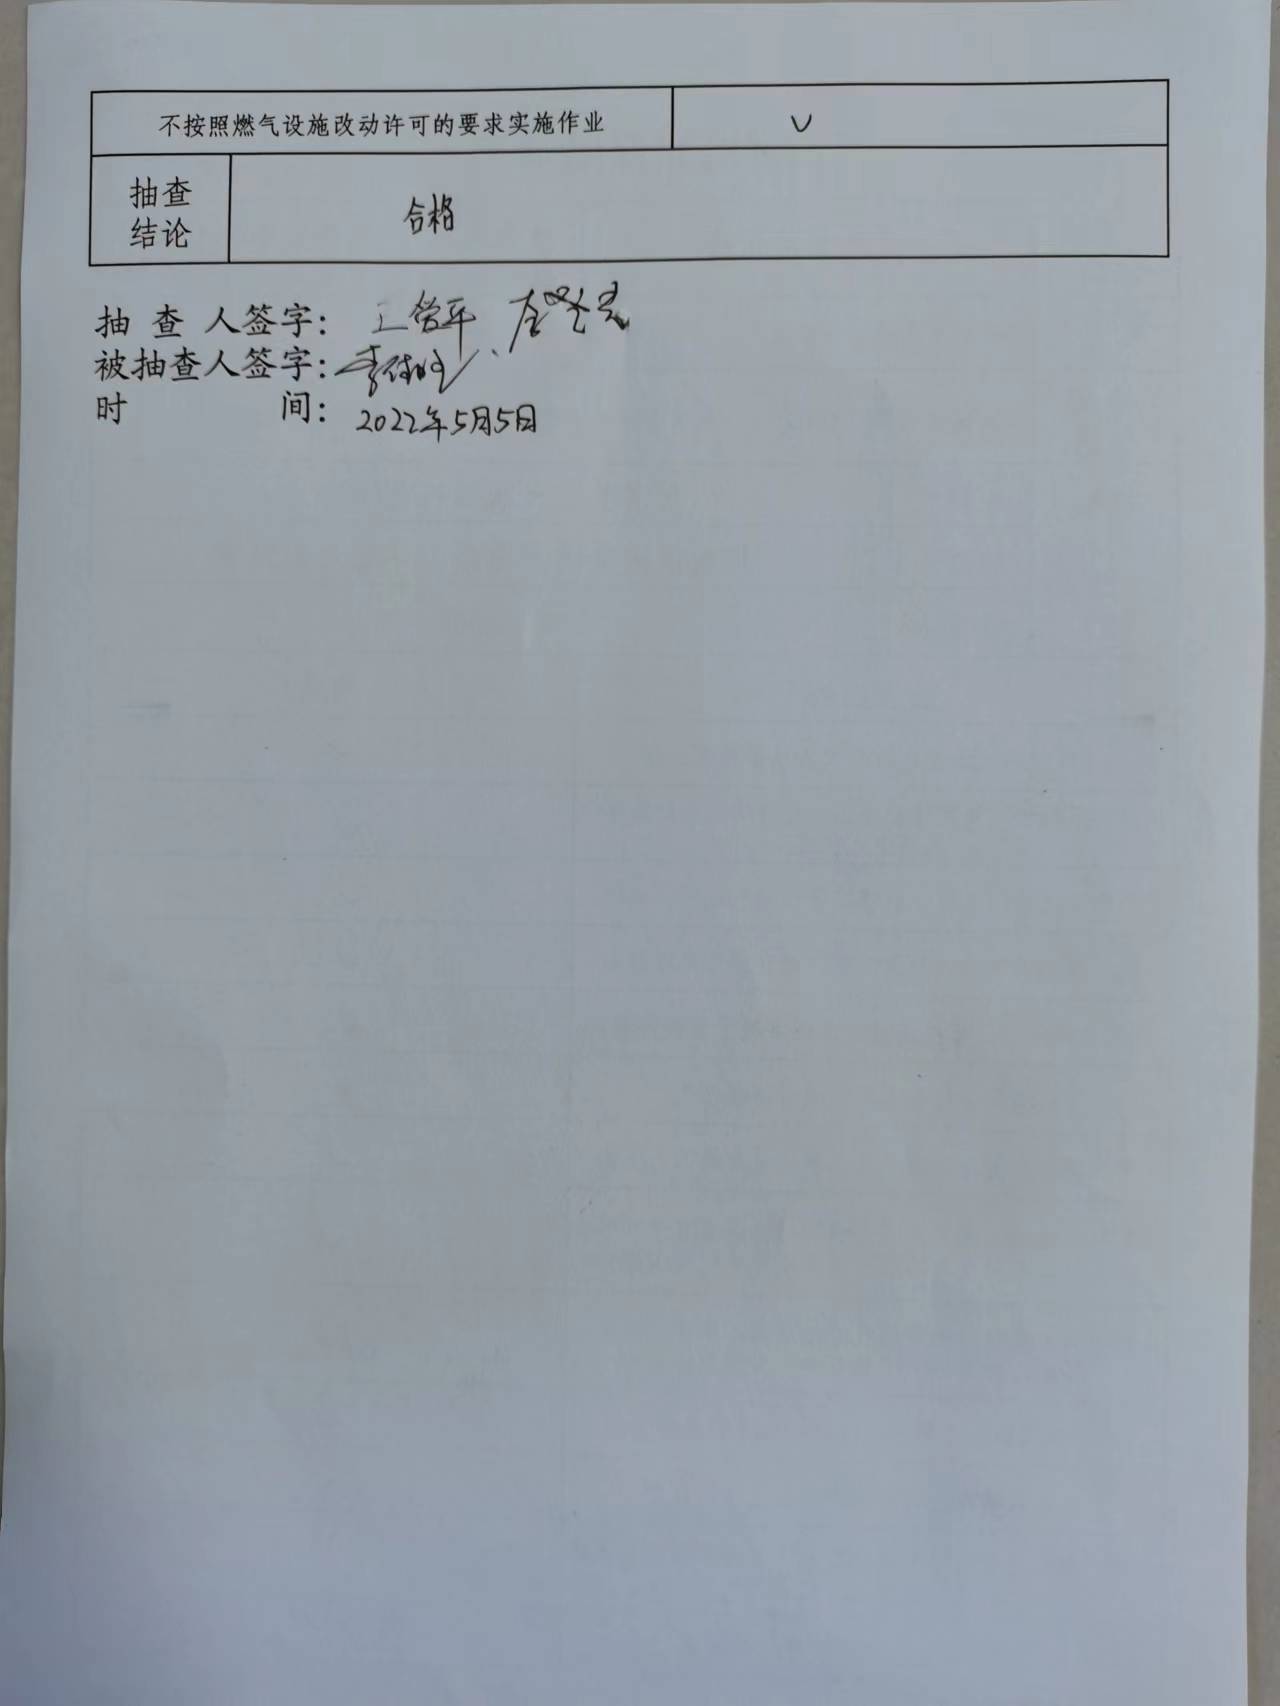 不按照燃气设施改动许可的要求实施作业 ∨
抽查结论 合格
抽查人签字：
被抽查人签字：
时间：2022年5月5日